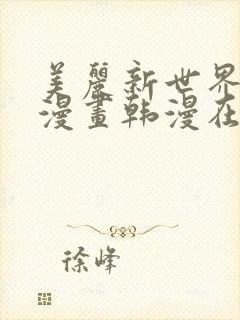 美麗新世界
漫畫韩漫在
徐峰